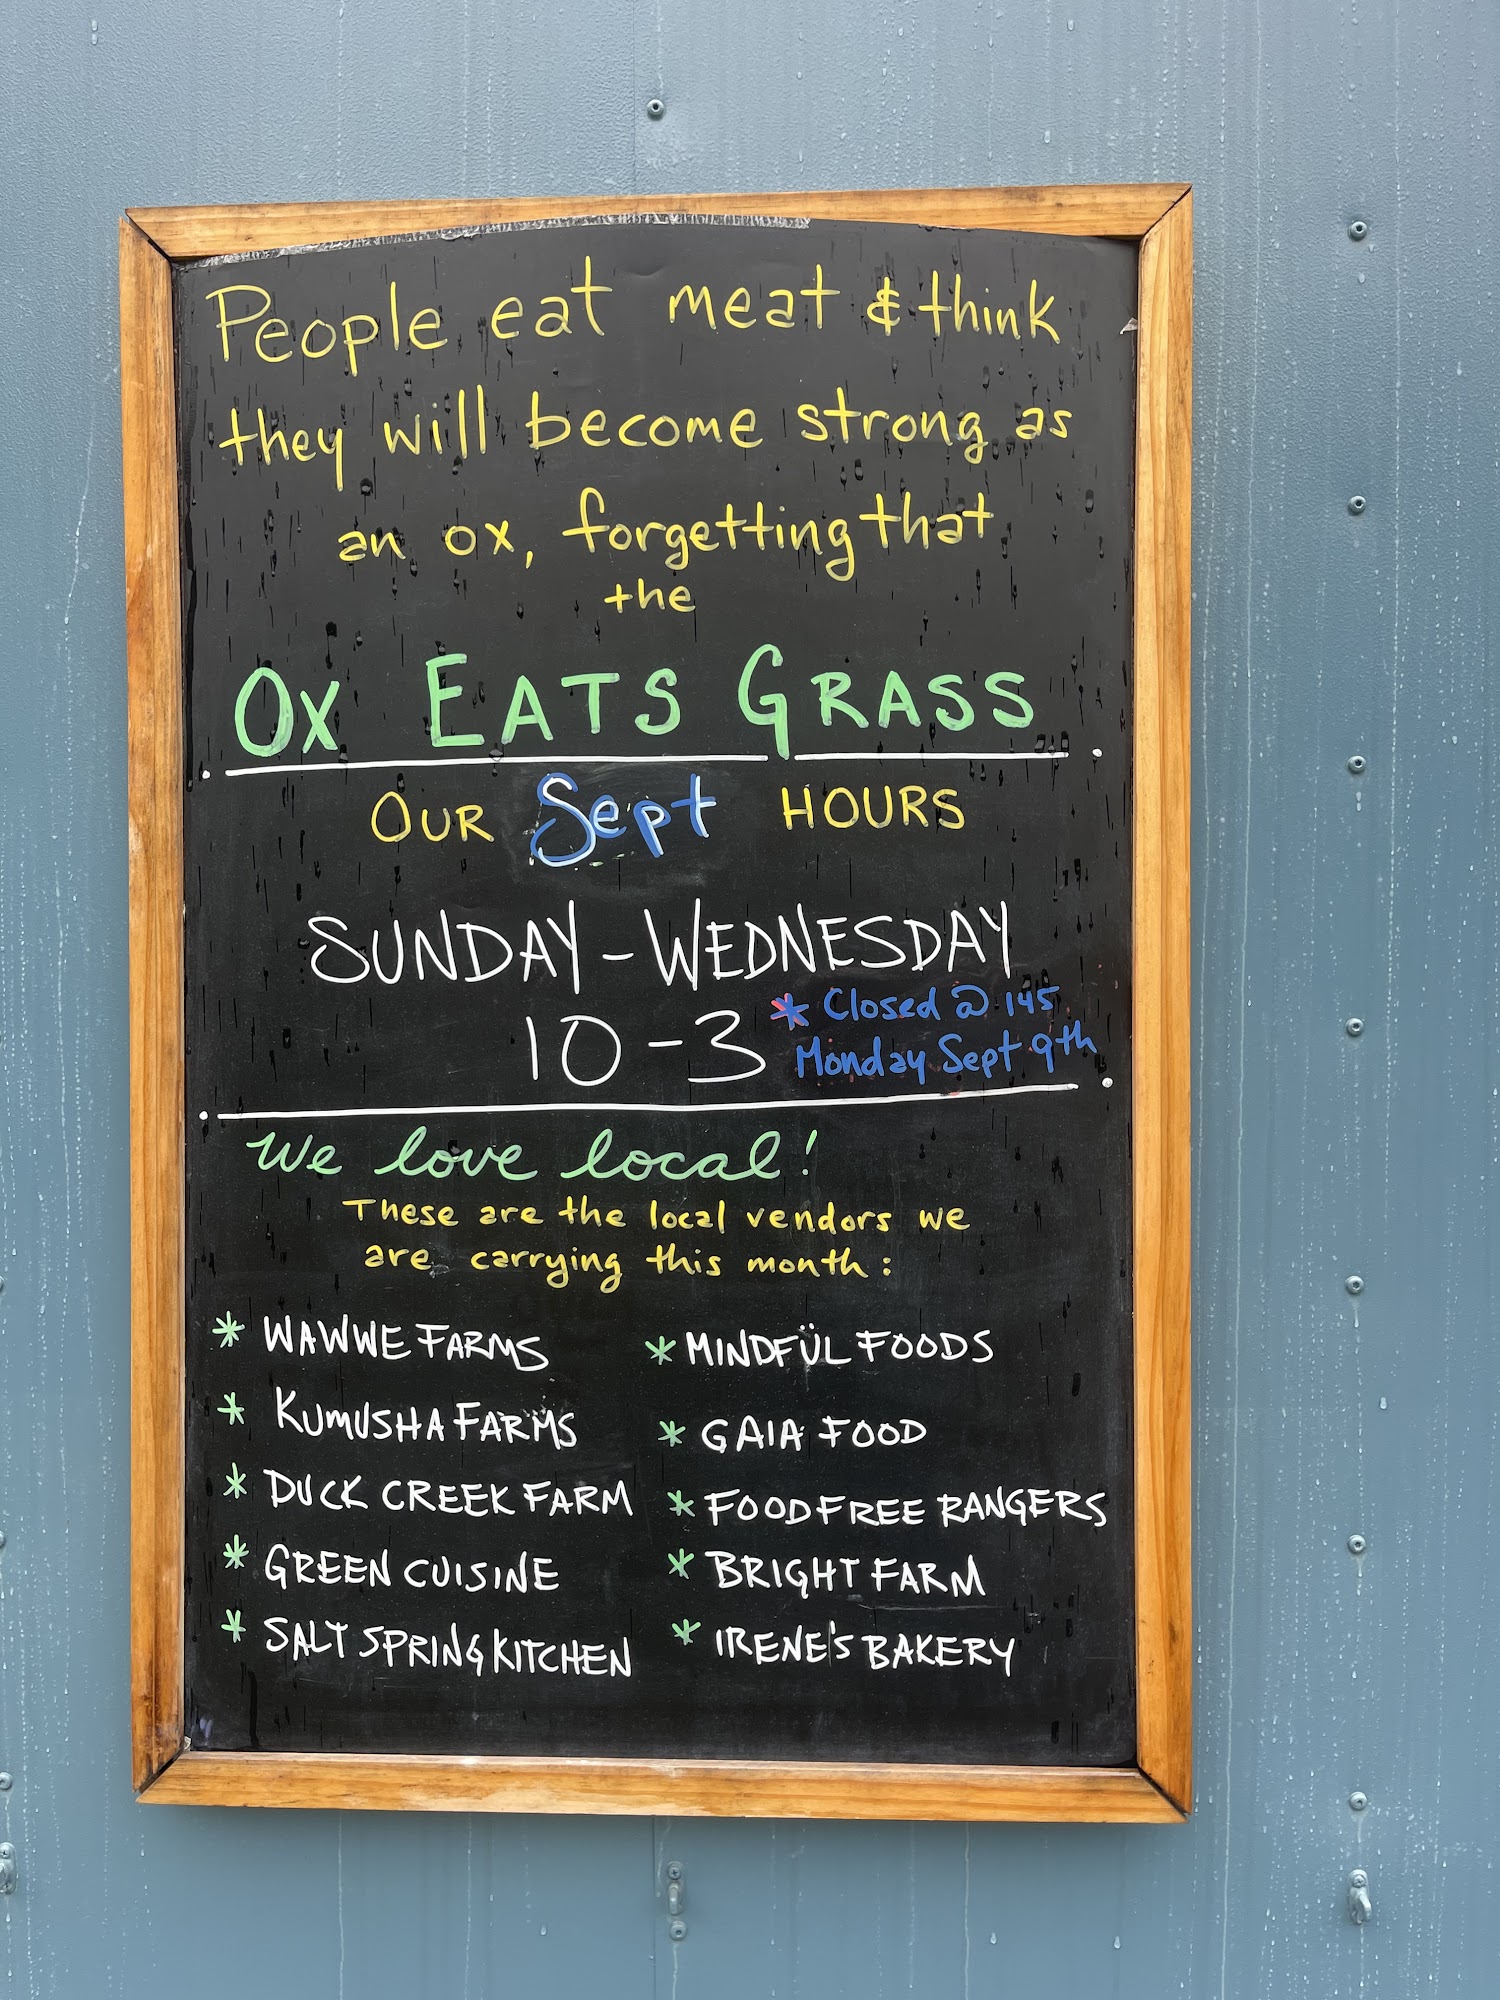 People eat meat & think
they will become strong as
an ox, forgetting that
the
OX EATS GRASS
OUR Sept HOURS
SUNDAY - WEDNESDAY
10-3
* Closed @ 145
Monday Sept 9th
We love local!
These are the local vendors we
are carrying this month:
* WAWWE FARMS
* KUMUSHA FARMS
* DUCK CREEK FARM
* GREEN CUISINE
* SALT SPRING KITCHEN
* MINDFÜL FOODS
* GAIA FOOD
* FOOD FREE RANGERS
* BRIGHT FARM
* IRENE'S BAKERY